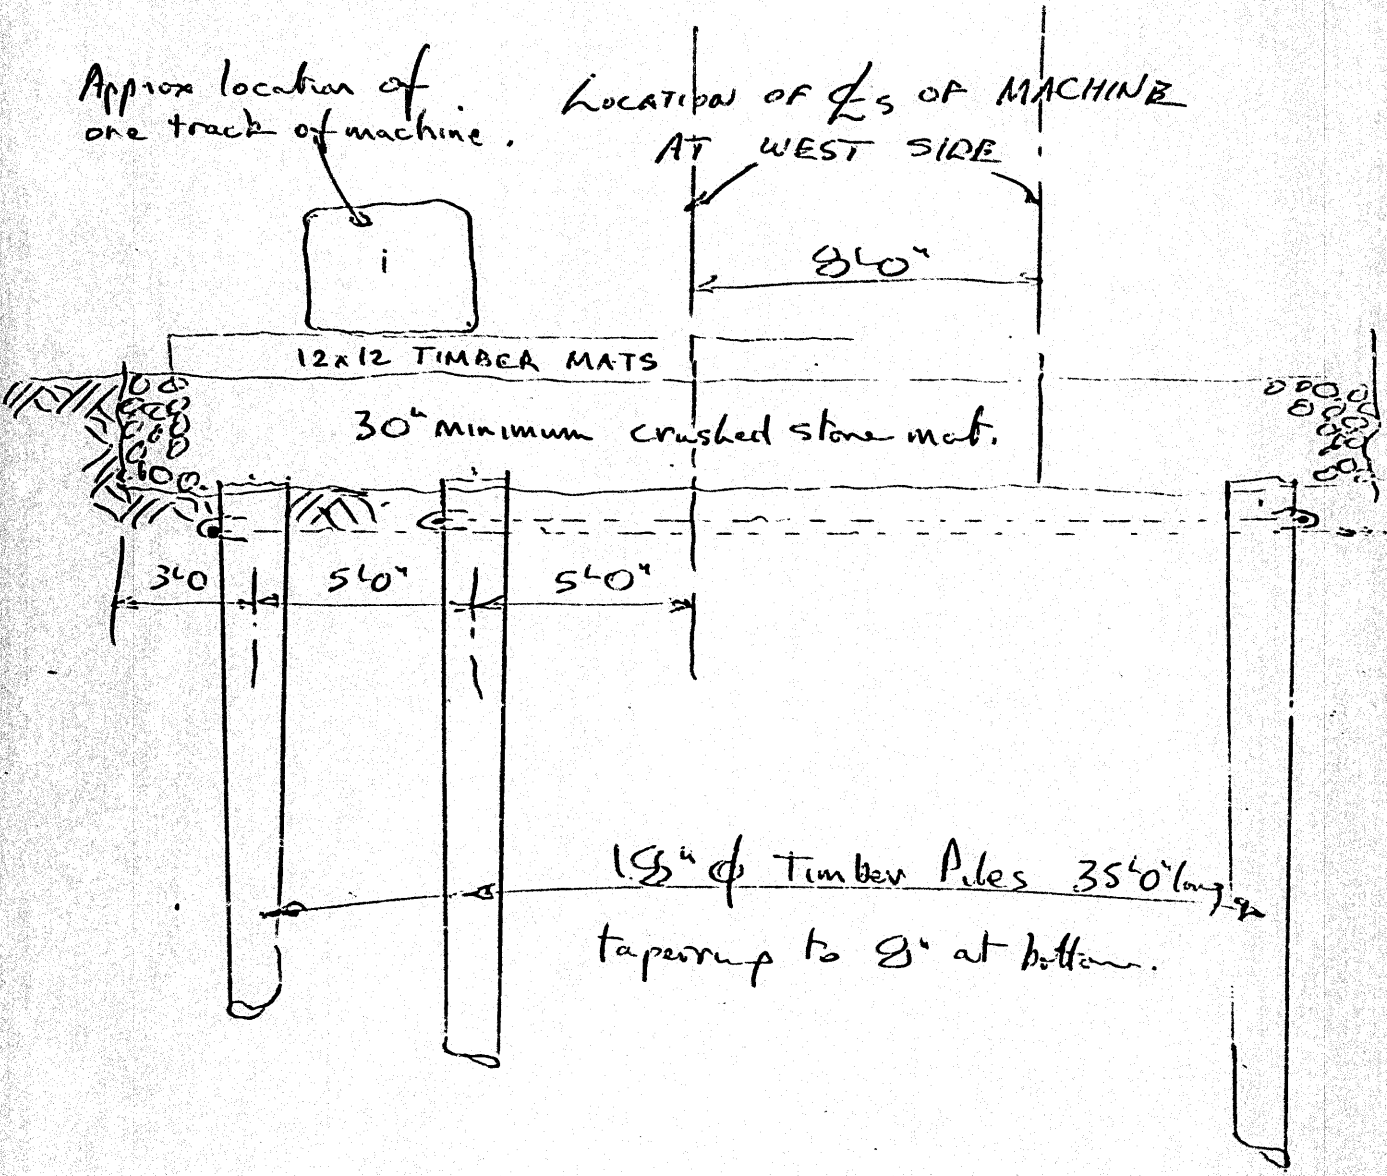 Approx location of
one track of machine.
LOCATION OF ℄s OF MACHINE
AT WEST SIDE
8'0"
12x12 TIMBER MATS
30" minimum crushed stone mat.
3'0 5'0" 5'0"
18" φ Timber Piles 35'0" long
tapering to 8" at bottom.